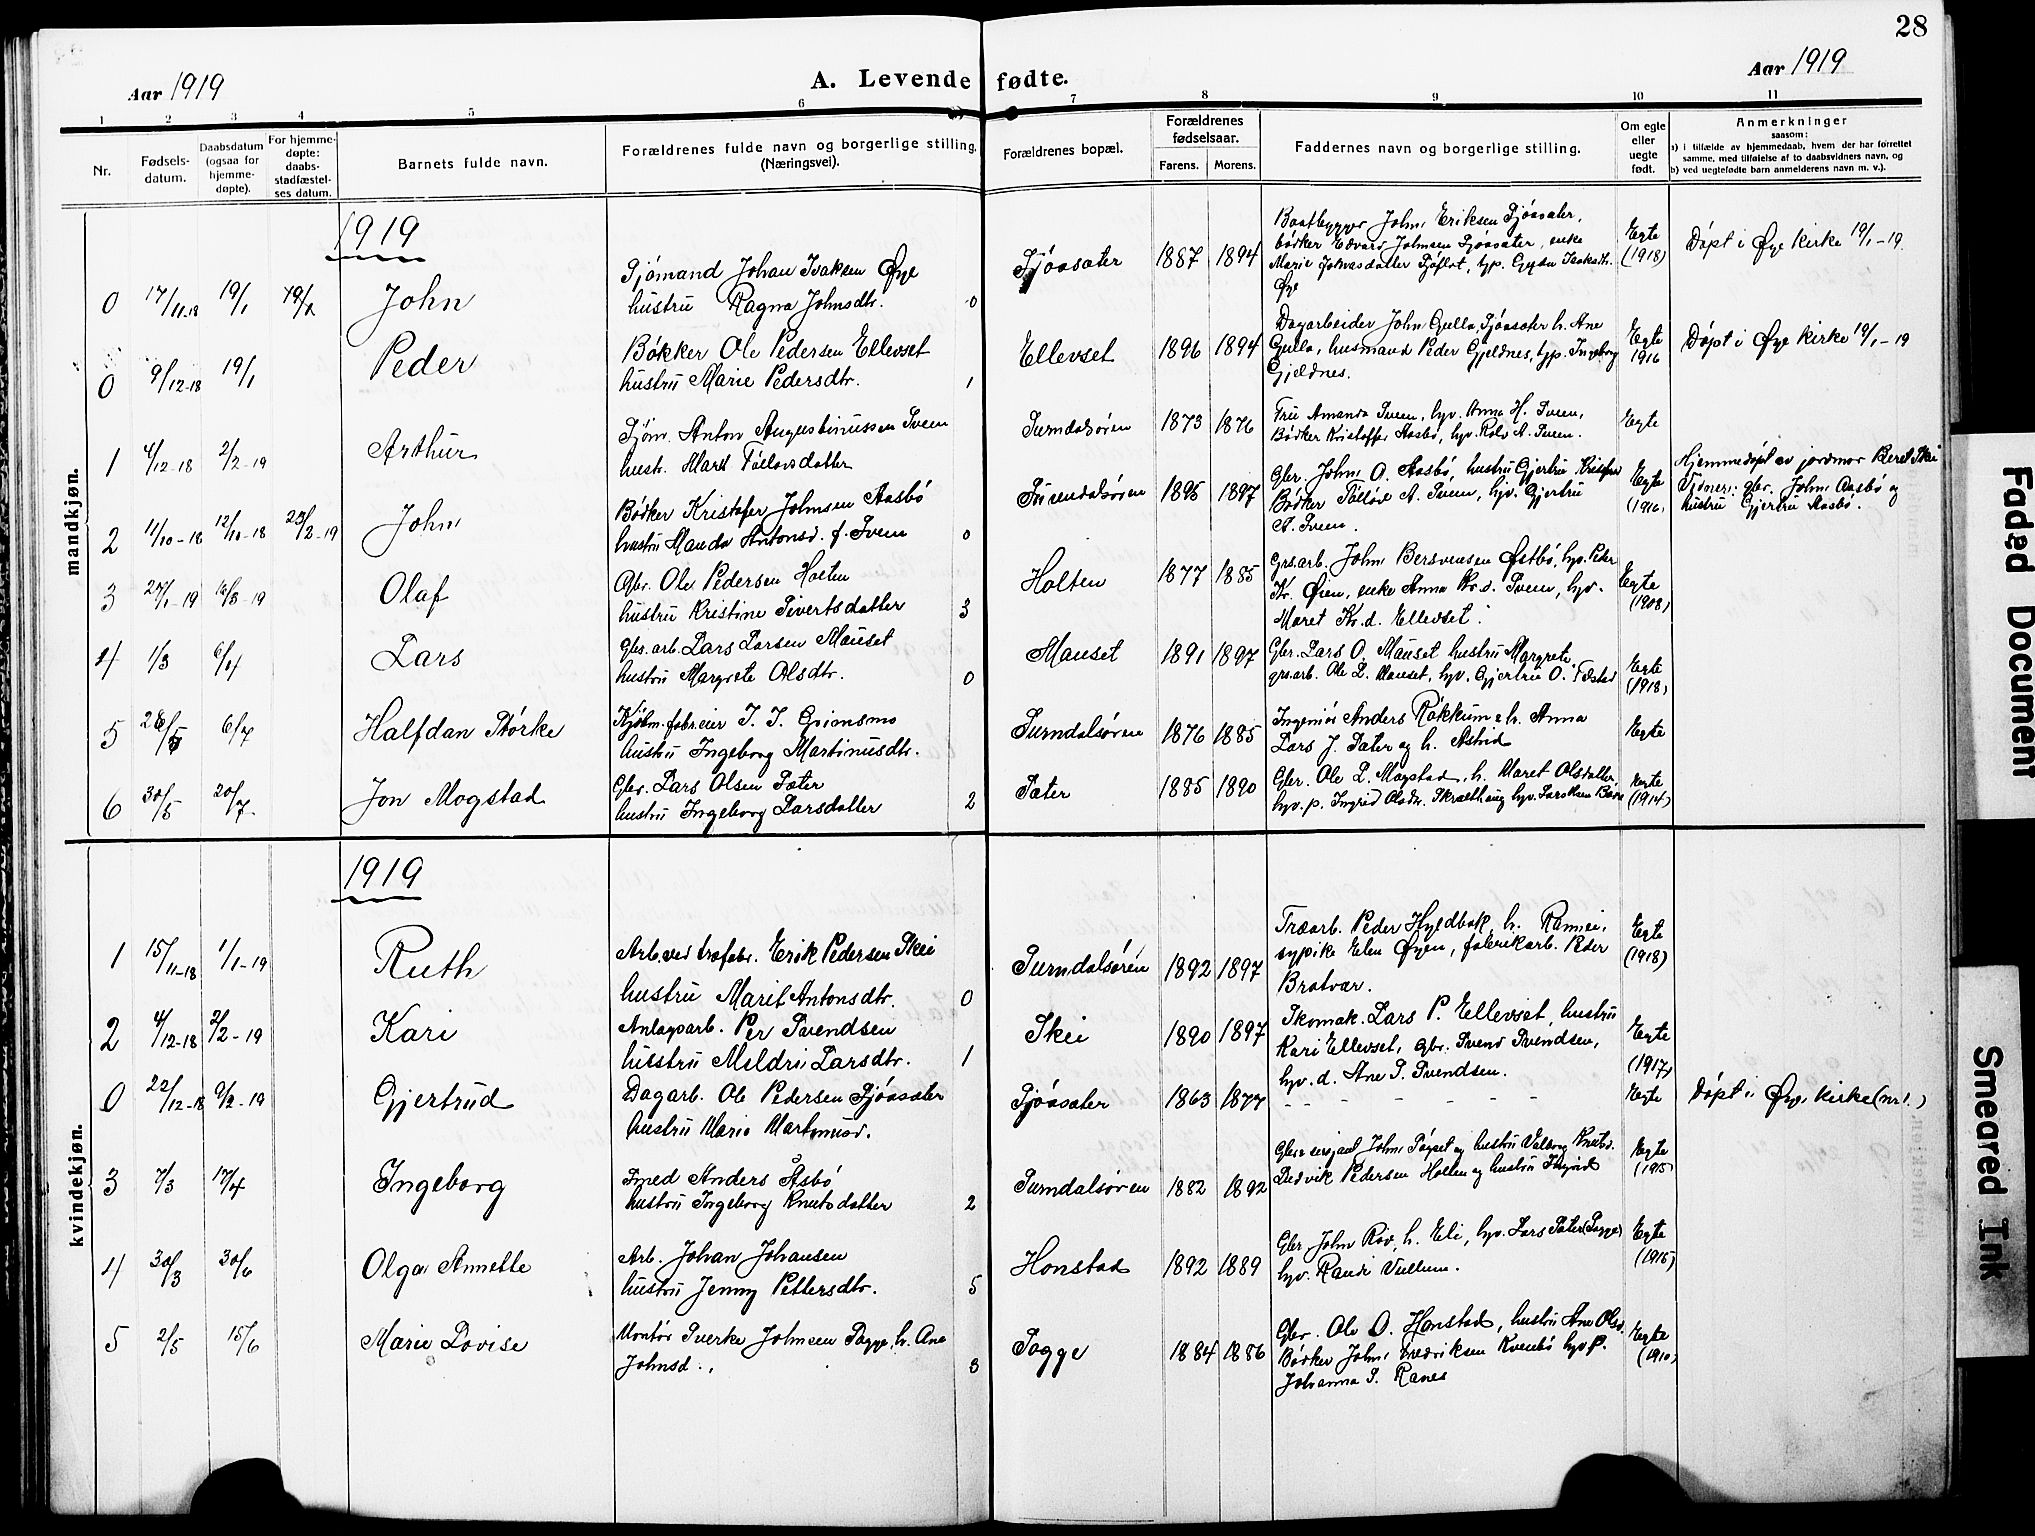 28
Aar 1919
A. Levende fødte.
Aar 1919
1 2 3 4 5 6 7 8 9 10 11
Nr.
Fødsels-
datum.
Daabsdatum
(ogsaa for
hjemme-
døpte).
For hjemme-
døpte:
daabs-
stadfæstel-
ses datum.
Barnets fulde navn.
Forældrenes fulde navn og borgerlige stilling.
(Næringsvei).
Forældrenes bopæl.
Forældrenes
fødselsaar.
Farens. Morens.
Faddernes navn og borgerlige stilling.
Om egte
eller
uegte
født.
Anmerkninger
saasom:
a) i tilfælde av hjemmedaab, hvem der har forrettet
samme, med tilføielse af to daabsvidners navn, og
b) ved uegtefødte barn anmelderens navn m. v.).
mandkjøn.
1919
0 17/11-18 19/1 John
Sjømand Johan Isaksen Øye
hustru Ragna Johnsdtr. 0
Sjøasæter 1887 1894
Baatbygger John Eriksen Sjøasæter,
bødker Edvard Johnsen Sjøasæter, enke
Marie Johnsdatter Sjøflot, typ. Gyda Isaksdtr.
Øye
Egte
(1918)
Døpt i Øye kirke 19/1-19
0 9/12-18 19/1 Peder
Bøkker Ole Pedersen Ellevset
hustru Marie Pedersdtr. 1
Ellevset 1896 1894
Dagarbeider John Gulla, Sjøasæter h. Ane
Gulla, husmand Peder Gjeldnes, typ. Ingeborg
Gjeldnes.
Egte
1916
Døpt i Øye kirke 19/1-19
1 4/12-18 2/2-19 Arthur
Sjøm. Anton Augustinussen Sveen
hustr. Marit Tollovsdatter
Surndalsøren 1873 1876
Fru Amanda Sveen, hyv. Anna H. Sveen,
Bødker Kristoffer Aasbø, hyv. Rolv A. Sveen.
Egte
2 11/10-18 12/10-18 23/2-19 John
Bødker Kristofer Johnsen Aasbø
hustru Manda Antonsd. f. Sveen 0
Surendalsøren 1895 1897
Gbr. John O. Aasbø, hustru Gjertru
Bødker A. Sveen, hyv. Gjertru
A. Sveen.
Egte
(1916)
Hjemmedøpt av jordmor Beret Skei
Vidner: gbr. John Aasbø og
hustru Gjertru Aasbø.
3 27/1-19 Olaf
Gbr. Ole Pedersen Holten
hustru Kristine Sivertsdatter 3
Holten 1877 1885
Grs.arb. John Bersvensen Østbø, hyv. Peder
Kr. Øien, enke Anna Sveen, hyv.
Maret Kr.d. Ellevset.
Egte
(1908)
4 1/3 6/4 Lars
Gbs.arb. Lars Larsen Mauset
hustru Margrete Olsdtr. 0
Mauset 1891 1897
Gbr. Lars O. Mauset hustru Margrete,
grs.arb. Ole L. Mauset, hyv. Gjertru O.
Egte
(1918)
5 28/5 6/7 Halfdan Størke
Kjøbm. fabr.eier
hustru Ingeborg Martinusdtr.
Surndalsøren 1876 1885
Ingeniør Anders Røkkum e h. Anna
Lars J. Sæter og h. Astrid
Egte
6 30/5 20/7 Jon Mogstad
Gbr. Lars Olsen Sæter
hustru Ingeborg Larsdatter 2
Sæter 1885 1890
Gbr. Ole L. Mogstad, h. Maret Olsdatter
hyv. p. Ingrid Olsdtr. Skralthaug hyv. Lars Olsen
Egte
(1914)
kvindekjøn.
1919
1 15/11-18 1/1-19 Ruth
Arb. ved træfabr. Erik Pedersen Skei
hustru Marit Antonsdtr. 0
Surndalsøren 1892 1897
Træarb. Peder Hyldbak, h.
sypike Elen Øyen, fabrikarb. Peder
Bratvær.
Egte
(1918)
2 4/12-18 2/2-19 Kari
Anlagsarb. Per Svendsen
hustru Mildri Larsdtr. 1
Skei 1890 1897
Skomak. Lars P. Ellevset, hustru
Kari Ellevset, gbr. Svend Svendsen,
hyv. d. Ane S. Svendsen.
Egte
(1917)
0 22/12-18 9/2-19 Gjertrud
Dagarb. Ole Pedersen Sjøasæter
hustru Marie Martinusd.
Sjøasæter 1863 1877
- - - - - - -
Egte
Døpt i Øye kirke (nr 1.)
3 7/3 17/4 Ingeborg
Smed Anders Åsbø
hustru Ingeborg Knutsdatter 2
Surndalsøren 1882 1892
Gbr. e sersjant John og hustru Valborg Knutsd.
Ludvik Pedersen Holten og hustru Ingrid
Egte
(1915)
4 30/3 30/6 Olga Annette
Arb. Johan Johansen
hustru Jenny Pettersdtr. 5
Honstad 1892 1889
Gbr. John Røv, h. Eli, hyv. Lars Sæter (Sogge)
hyv. Randi Vullum.
Egte
(1915)
5 2/5 15/6 Marie Lovise
Montør Sverke Johnsen Sogge, h. Ane
Johnsd. 3
Sogge 1884 1886
Gbr. Ole O. Honstad, hustru Ane Olsd.
Bødker John Fredriksen Kvenbø hyv P.
Johanna S. Ranes
Egte
(1910)
Faded Document
Smeared Ink